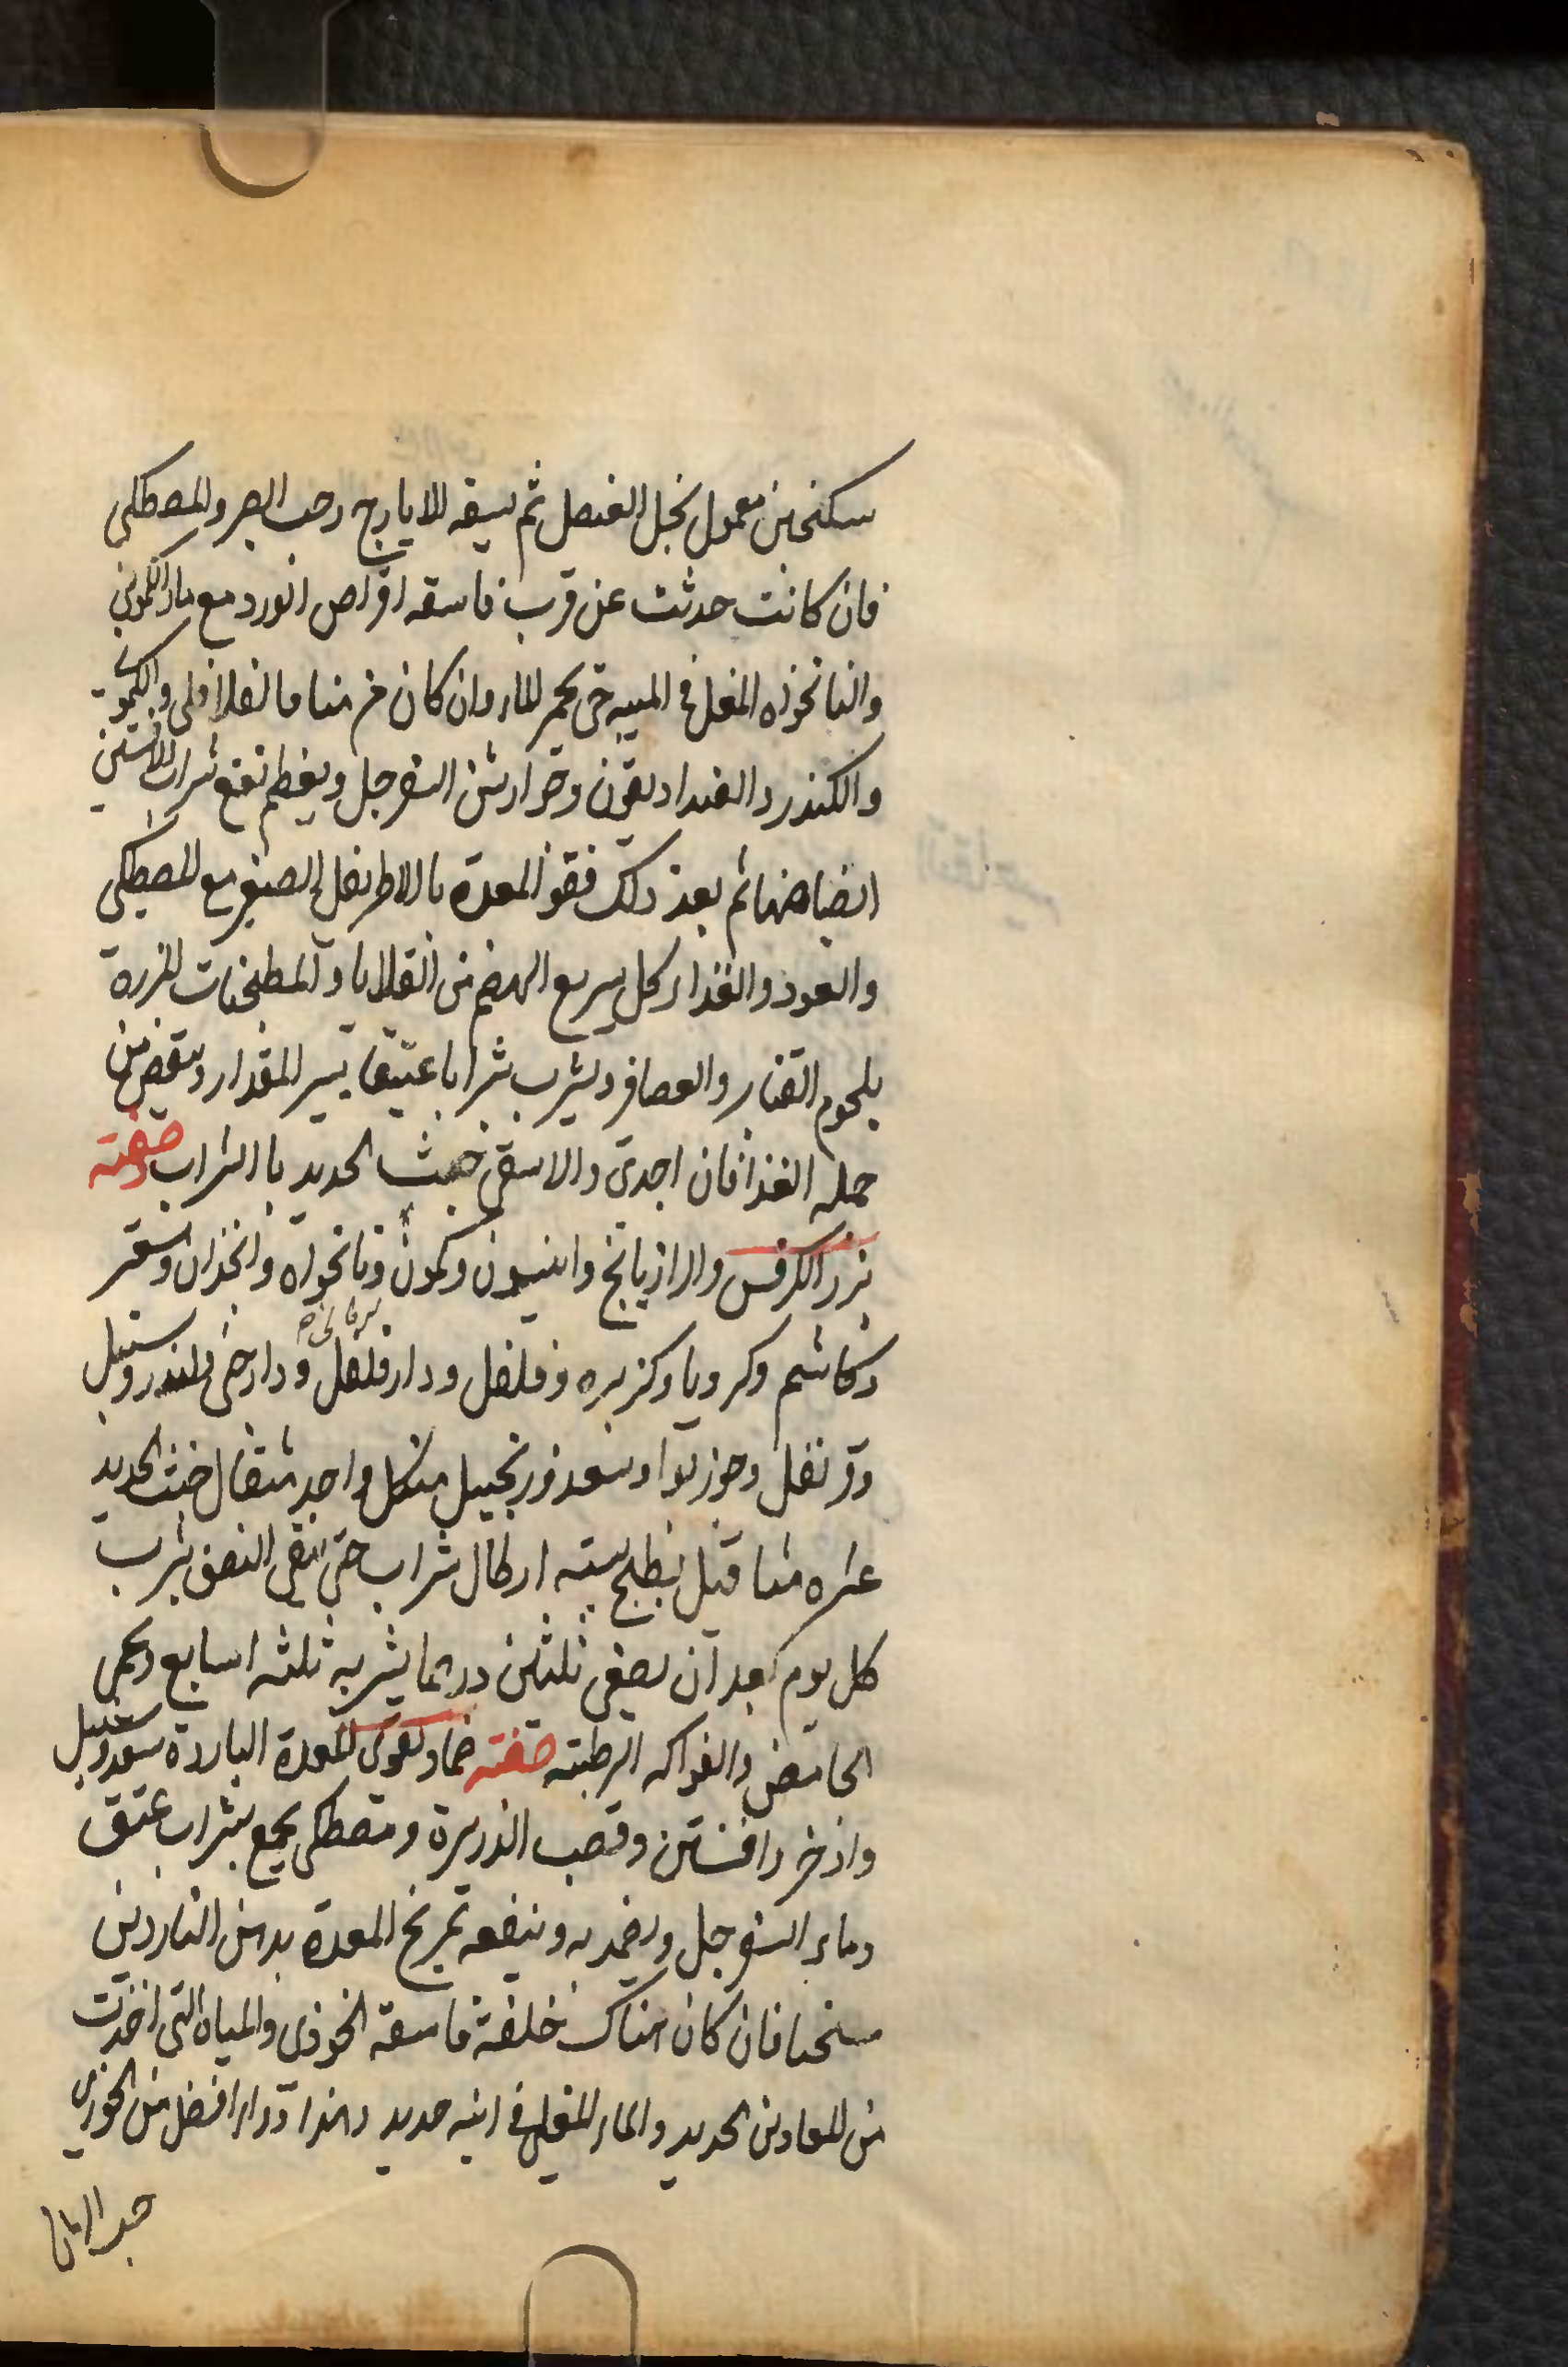 سكنجبين معمول بخل العنصل ثم يسقه الايارج وحب الصبر والمصطكى
فان كانت حدثت عن قرب فاسقه اقراص الورد مع ماء الكمون
والنانخواه المغلى فى الميبه حتى يحمر الماء وان كان مزمنا فالفلافلى والكمونى
والكندر والفنداديقون وجوارشن السفرجل ويعظم نفع شراب الافسنتين
ايضا هنا ثم بعد ذلك فقو المعدة بالاطريفل الصغير مع المصطكى
والعود والغذاء كل سريع الهضم من القلايا والمطجنات المبزرة
بلحوم القنابر والعصافر ويشرب شرابا عتيقا يسير المقدار وينقص من
جمله الغذا فان اجدى والا سقى خبث الحديد بالشراب وصفته
بزر الكرفس والرازيانج وانيسون وكمون ونانخواه وانجدان وسعتر
وكاشم وكرويا وكزبره وفلفل ودارفلفل ودارصينى وسنبل
وقرنفل وجوزبوا وسعد وزنجبيل من كل واحد مثقال خبث الحديد
عشره مثاقيل يطبخ بسته ارطال شراب حتى يبقى النصف يشرب
كل يوم بعد ان يصفى ثلثين درهما يشربه ثلثه اسابع ويحمى
الحامض والفواكه الرطبته صفته ضماد يقوى المعدة الباردة سعد وسنبل
واذخر وافسنتين وقصب الذريرة ومصطكى يجمع بشراب عتيق
وماء السفرجل ويضمد به وينفعه تمريخ المعدة بدهن الناردين
مسخنا فان كان هناك خلفة فاسقه الخوزى والمياه التى اخذت
من المعادن الحديد والماء المغلى فى انيه حديد وهذا دواء افضل من الخوزى
حب الرمان